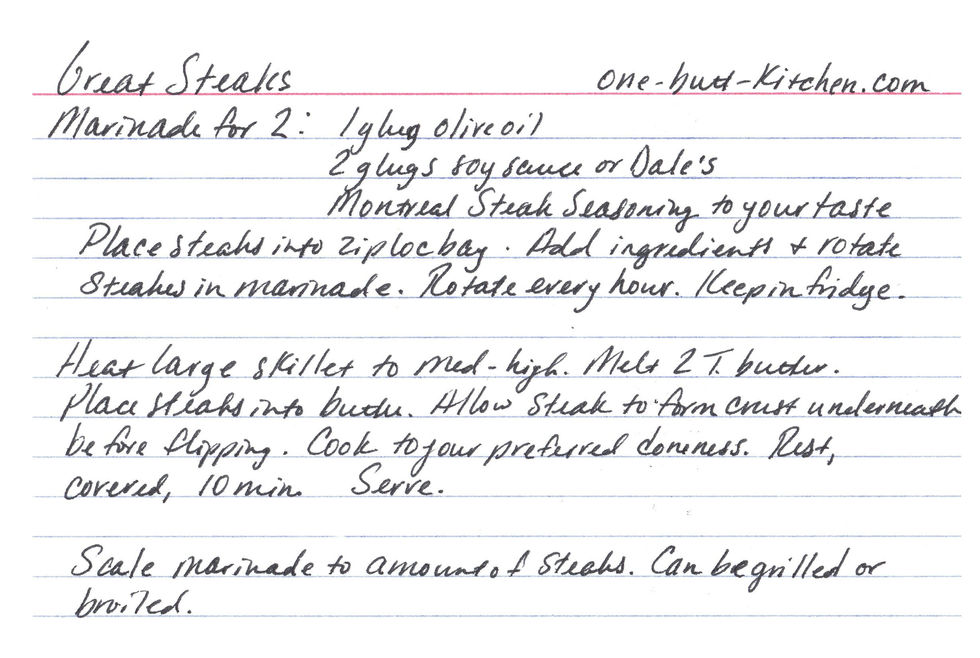 Great Steaks one-butt-kitchen.com
Marinade for 2: 1 glug olive oil
2 glugs soy sauce or Dale's
Montreal Steak Seasoning to your taste
Place steaks into ziploc bag. Add ingredients + rotate
steakes in marinade. Rotate every hour. Keep in fridge.
Heat large skillet to med-high. Melt 2 T. butter.
Place steaks into butter. Allow steak to form crust underneath
before flipping. Cook to your preferred doneness. Rest,
covered, 10 min. Serve.
Scale marinade to amount of steaks. Can be grilled or
broiled.